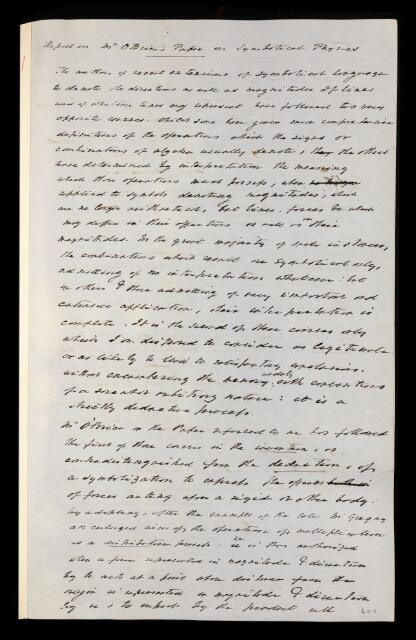 Report on Mr O'Brien's Paper on Symbolical Physics
The authors of recent extensions of symbolical language
to denote the directions as well as magnitudes of lines
and of other lines may represent have followed two very
opposite courses: whilst some have given more comprehensive
definitions of the operations which the signs or
combinations of algebra usually denote, the others
have determined by interpretation the meaning
which those operations must possess, when
applied to symbols denoting magnitudes, which
are no longer abstract, but lines, forces &c which
may differ in their affections as well as in their
magnitudes. In the great majority of such instances,
the combinations which result are symbolical only,
admitting of no interpretation whatever: but
in others & those admitting of very important and
extensive application, their interpretation is
complete. It is the second of these courses only
which I am disposed to consider as legitimate
or as likely to lead to satisfactory conclusions.
without encumbering the memory unduly with conventions
of a somewhat arbitrary nature: it is a
strictly deductive process.
Mr O'Brien in the Paper referred to me has followed
the first of these courses in the invention, as
contradistinguished from the deduction, of
a symbolization to express the effects
of forces acting upon a rigid or other body:
by adopting, after the example of the late Mr Gregory
an enlarged view of the operation of multiplication
as a distributive process: he is thus authorized
when a force represented in magnitude & direction
by u acts at a point whose distance from the
origin is represented in magnitude & direction
by u, to express by the product